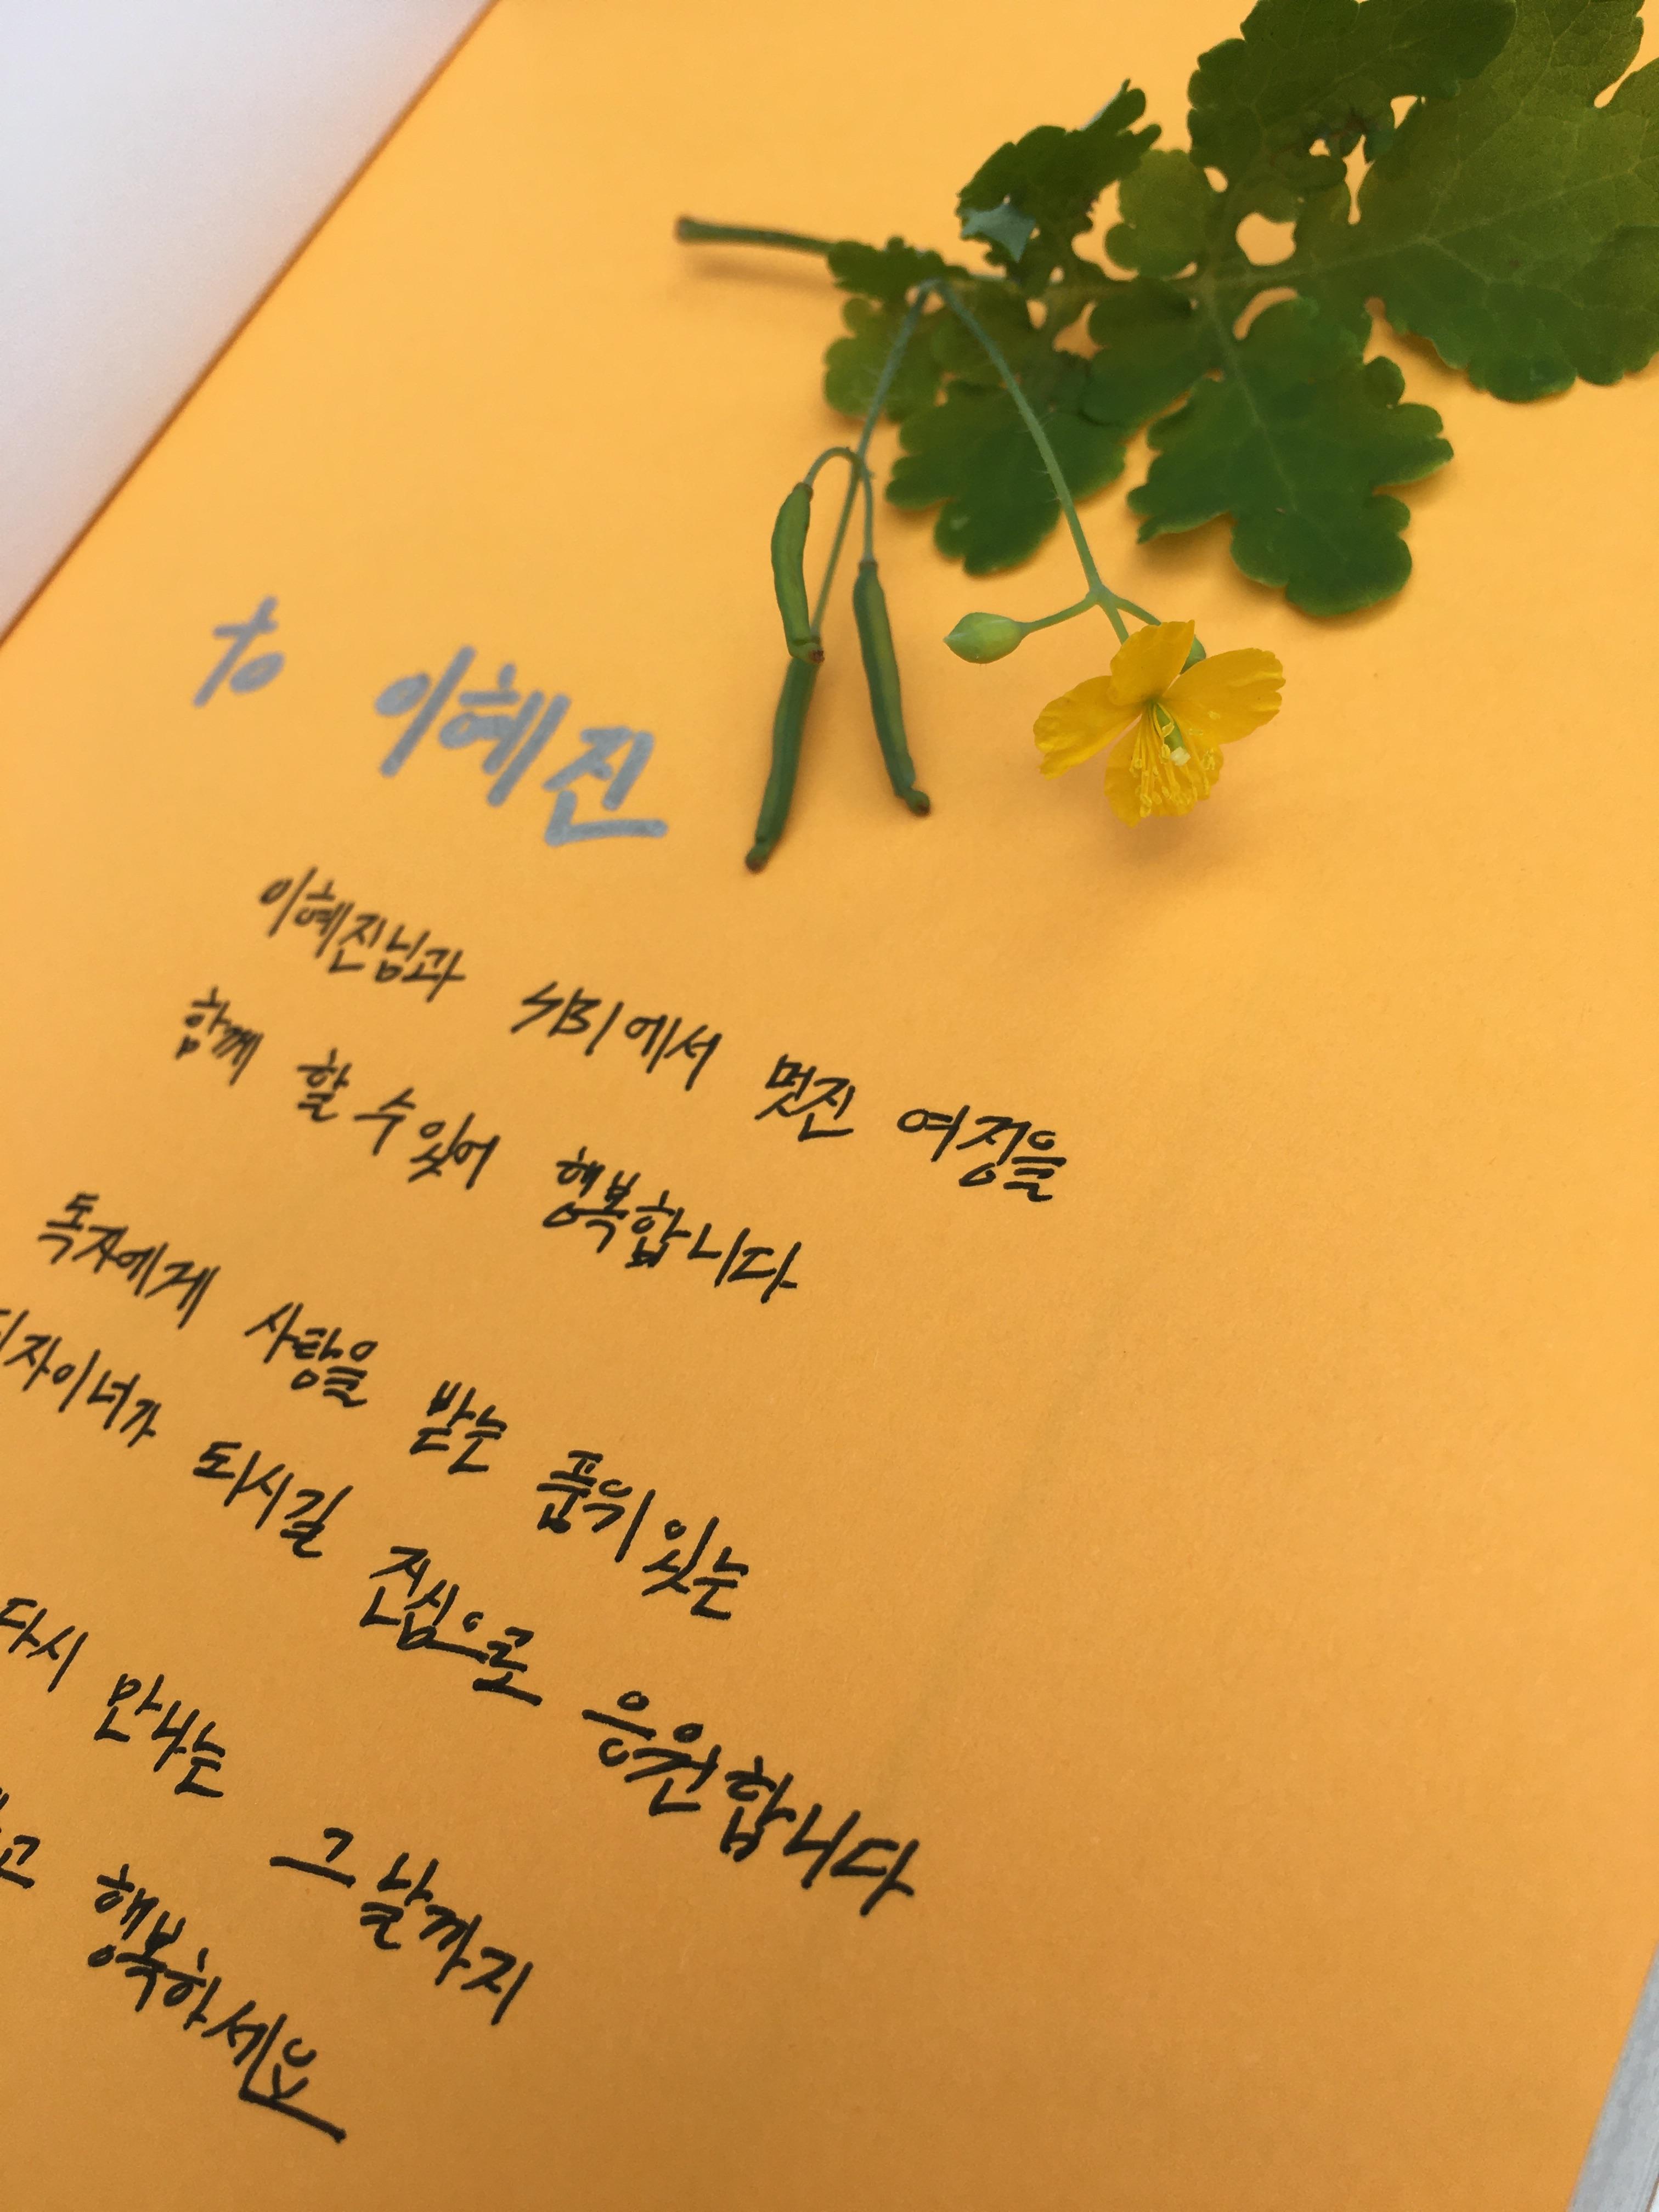 to 이혜진
이혜진님과 SBI에서 멋진 여정을
함께 할 수 있어 행복합니다
독자에게 사랑을 받는 품위있는
디자이너가 되시길 진심으로 응원합니다
다시 만나는 그날까지
행복하세요